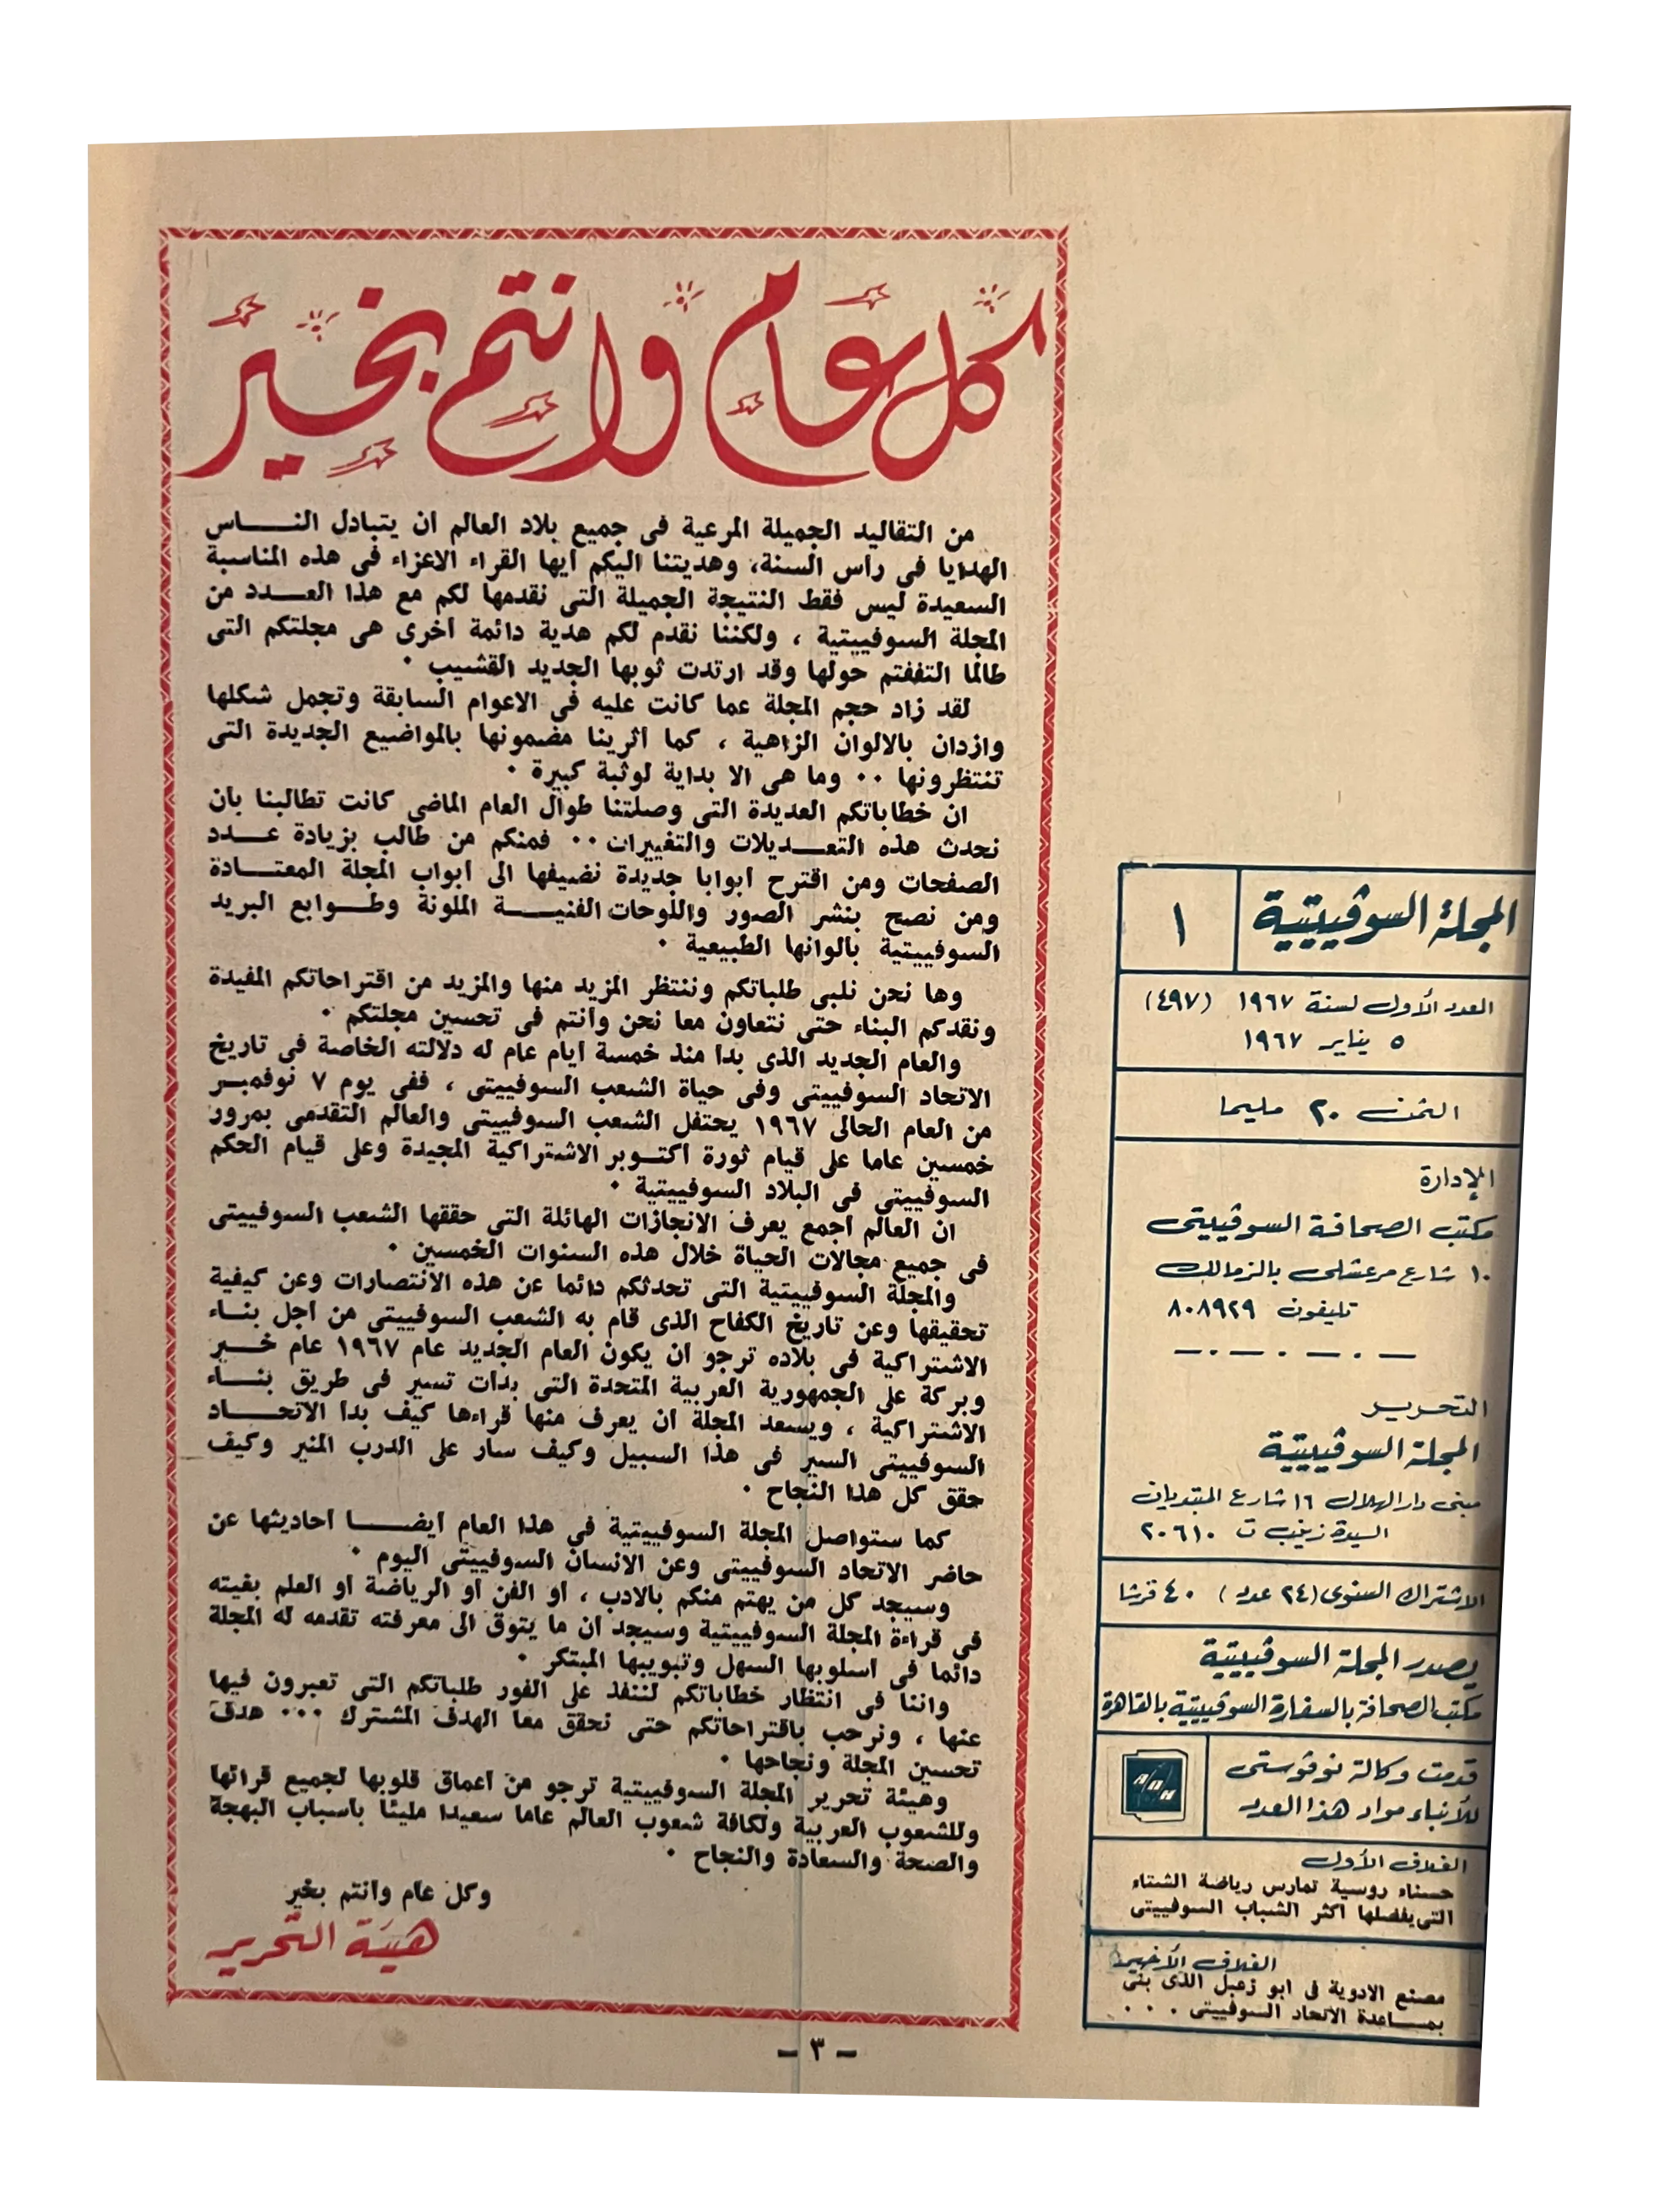 كل عام وانتم بخير
من التقاليد الجميلة المرعية فى جميع بلاد العالم ان يتبادل النـــــاس
الهدايا فى رأس السنة، وهديتنا اليكم ايها القراء الاعزاء فى هذه المناسبة
السعيدة ليس فقط النتيجة الجميلة التى نقدمها لكم مع هذا العـــدد من
المجلة السوفييتية ، ولكننا نقدم لكم هدية دائمة اخرى هى مجلتكم التى
طالما التففتم حولها وقد ارتدت ثوبها الجديد القشيب .
لقد زاد حجم المجلة عما كانت عليه فى الاعوام السابقة وتجمل شكلها
وازدان بالالوان الزاهية ، كما اثرينا مضمونها بالمواضيع الجديدة التى
تنتظرونها .. وما هى الا بداية لوثبة كبيرة .
ان خطاباتكم العديدة التى وصلتنا طوال العام الماضى كانت تطالبنا بأن
نحدث هذه التعـــديلات والتغييرات .. فمنكم من طالب بزيادة عـــدد
الصفحات ومن اقترح ابوابا جديدة نضيفها الى ابواب المجلة المعتــــادة
ومن نصح بنشر الصور واللوحات الفنيـــة الملونة وطــوابع البريد
السوفييتية بالوانها الطبيعية .
وها نحن نلبى طلباتكم وننتظر المزيد منها والمزيد من اقتراحاتكم المفيدة
ونقدكم البناء حتى نتعاون معا نحن وانتم فى تحسين مجلتكم .
والعام الجديد الذى بدا منذ خمسة ايام عام له دلالته الخاصة فى تاريخ
الاتحاد السوفييتى وفى حياة الشعب السوفييتى ، ففى يوم ٧ نوفمبـر
من العام الحالى ١٩٦٧ يحتفل الشعب السوفييتى والعالم التقدمى بمرور
خمسين عاما على قيام ثورة اكتـوبر الاشتراكية المجيدة وعلى قيام الحكم
السوفييتى فى البلاد السوفييتية .
ان العالم اجمع يعرف الانجازات الهائلة التى حققها الشعب السوفييتى
فى جميع مجالات الحياة خلال هذه السنوات الخمسين .
والمجلة السوفييتية التى تحدثكم دائما عن هذه الانتصارات وعن كيفية
تحقيقها وعن تاريخ الكفاح الذى قام به الشعب السوفييتى من اجل بنـاء
الاشتراكية فى بلاده ترجو ان يكون العام الجديد عام ١٩٦٧ عام خـــير
وبركة على الجمهورية العربية المتحدة التى بدأت تسير فى طريق بنـــاء
الاشتراكية ، ويسعد المجلة ان يعرف منها قراءها كيف بدا الاتحـــاد
السوفييتى السير فى هذا السبيل وكيف سار على الدرب المنير وكيف
حقق كل هذا النجاح .
كما ستواصل المجلة السوفييتية فى هذا العام ايضـــا احاديثها عن
حاضر الاتحاد السوفييتى وعن الانسان السوفييتى اليوم .
وسيجد كل من يهتم منكم بالادب ، او الفن او الرياضة او العلم بغيته
فى قراءة المجلة السوفييتية وسيجد ان ما يتوق الى معرفته تقدمه له المجلة
دائما فى اسلوبها السهل وتبويبها المبتكر .
واننا فى انتظار خطاباتكم لننفذ على الفور طلباتكم التى تعبرون فيها
عنها ، ونرحب باقتراحاتكم حتى نحقق معا الهدف المشترك ... هدف
تحسين المجلة ونجاحها .
وهيئة تحرير المجلة السوفييتية ترجو من اعماق قلوبها لجميع قرائها
وللشعوب العربية ولكافة شعوب العالم عاما سعيدا مليئا باسباب البهجة
والصحة والسعادة والنجاح .
وكل عام وانتم بخير
هيئة التحرير
المجلة السوڤييتية
١
العدد الأول لسنة ١٩٦٧ (٤٩٧)
٥ يناير ١٩٦٧
الثمن ٢٠ مليما
الإدارة
مكتب الصحافة السوڤييتى
١٠ شارع مرعشلى بالزمالك
تليفون ٨٠٨٩٢٩
التحرير
المجلة السوڤييتية
مبنى دار الهلال ١٦ شارع المبتديان
السيدة زينب ت ٢٠٦١٠
الاشتراك السنوى (٢٤ عدد) ٤٠ قرشا
يصدر المجلة السوڤييتية
مكتب الصحافة بالسفارة السوڤييتية بالقاهرة
قدمت وكالة نوڤوستى
للأنباء مواد هذا العدد
АПН
الغلاف الأول
حسناء روسية تمارس رياضة الشتاء
التى يفضلها اكثر الشباب السوفييتى
الغلاف الأخير
مصنع الادوية فى ابو زعبل الذى بنى
بمســاعدة الاتحاد السوفييتى . . .
- ٣ -